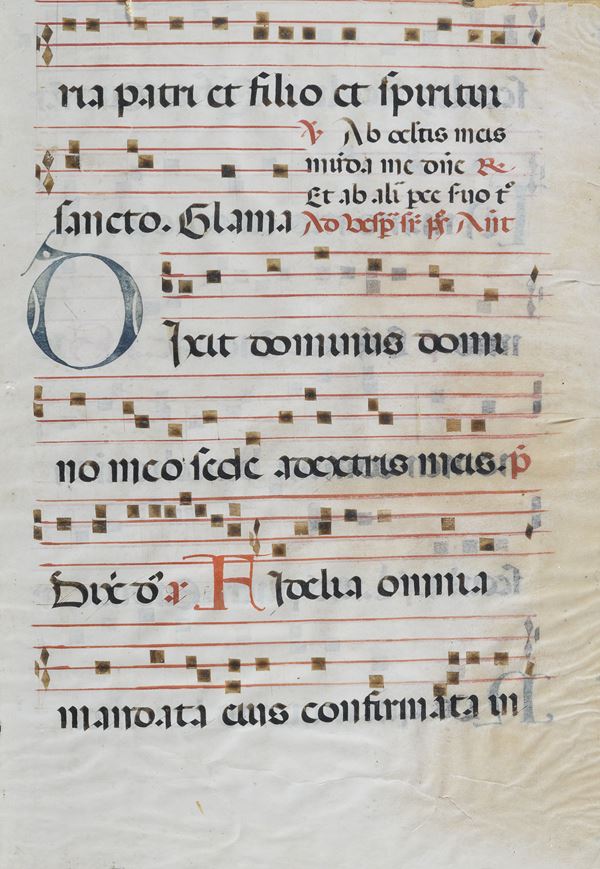 ria patri et filio et spiritui
℣ Ab ocĺtis meis
mūda me dn̄e ℞
Et ab ali pce suo tº
sancto. Glama
Ad vesp̄ sr̄ ps̄ Añt
Dixit dominus domi
no meo sede adextris meis. p̄
Dix̄ dō̄ a Fidelia omnia
mandata eius confirmata in